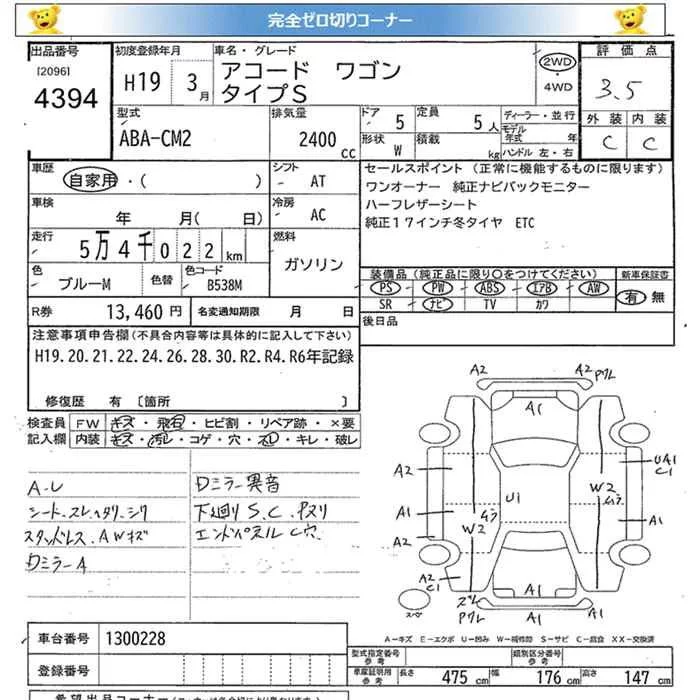 完全ゼロ切りコーナー
出品番号
[2096]
4394
初度登録年月
H19 3月
車名・グレード
アコード ワゴン
タイプS
2WD
・
4WD
評価点
3.5
外装 内装
C C
型式
ABA-CM2
排気量
2400
cc
ドア
5
定員
5人
形状
W
積載
kg
ディーラー・並行
モデル年式 年
ハンドル 左・右
車歴
自家用・( )
シフト
AT
セールスポイント (正常に機能するものに限ります)
ワンオーナー 純正ナビバックモニター
ハーフレザーシート
純正17インチ冬タイヤ ETC
車検
年 月( 日)
冷房
AC
走行
5万4千022km
燃料
ガソリン
色
ブルーM
色替
色コード
B538M
装備品(純正品に限り○をつけてください)
PS PW ABS エアB AW
SR ナビ TV カワ
新車保証書
有 無
R券 13,460円
名変通知期限 月 日
後日品
注意事項申告欄(不具合内容等は具体的に記入して下さい)
H19.20.21.22.24.26.28.30.R2.R4.R6年記録
修復歴 有 〔箇所 〕
検査員記入欄
FW キズ・飛石・ヒビ割・リペア跡・×要
内装 キズ・汚レ・コゲ・穴・スレ・キレ・破レ
A-レ
シート.スレ.ヘタリ.シワ
スタッドレス.AWキズ
ロミラーA
ロミラー異音
下廻りS.C.
エンドパネルC穴
A2
A2
A1
A2
A1
A2
C1
W2
ムラ
U1
W2
ムラ
UA1
C1
A1
A1
A1
スペア
A-キズ E-エクボ U-凹み W-補修跡 S-サビ C-腐食 XX-交換済
車台番号 1300228
登録番号
型式指定番号
参考
類別区分番号
参考
車庫証明用
参考
長さ 475cm
幅 176cm
高さ 147cm
希望出品コーナー